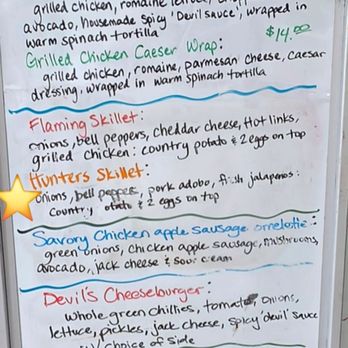 grilled chicken, romaine
avocado, housemade spicy 'Devil sauce', wrapped in
warm spinach tortilla
$14.00
Grilled Chicken Caeser Wrap:
grilled chicken, romaine, parmesan cheese, caesar
dressing, wrapped in warm spinach tortilla
Flaming Skillet:
onions, bell peppers, cheddar cheese, Hot links,
grilled chicken: country potato & 2 eggs on top
Hunters Skillet:
onions, bell pepper, pork adobo, fresh jalapenos:
country potato & 2 eggs on top
Savory Chicken apple Sausage omelotte:
green onions, chicken apple sausage, mushrooms,
avocado, jack cheese & sour cream
Devil's Cheeseburger:
whole green chillies, tomato, onions,
lettuce, pickles, jack cheese, spicy 'devil' sauce
choice of side